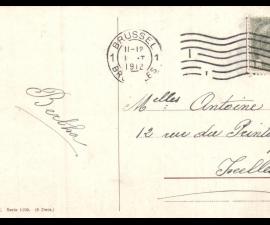 BRUSSEL
11-12
1912
Bertha
Mselles Antoine
12 rue du Print
Ixelles
Serie 1109. (6 Dess.)